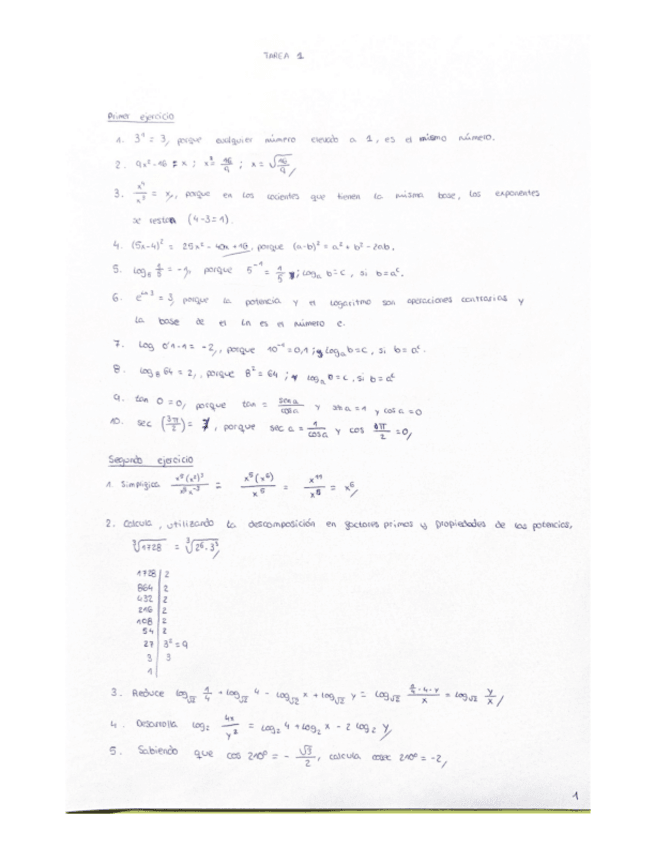 TAREA 1
Primer ejercicio
1. 3¹ = 3, porque cualquier número elevado a 1, es el mismo número.
2. 9x²-16 = x ; x² = 16/9 ; x = √(16/9)
3. x⁴/x³ = x, porque en los cocientes que tienen la misma base, los exponentes
se restan (4-3=1).
4. (5x-4)² = 25x² - 40x + 16, porque (a-b)² = a² + b² - 2ab.
5. log₅ 1/5 = -1, porque 5⁻¹ = 1/5 ; logₐ b=c, si b=aᶜ.
6. e^(ln 3) = 3, porque la potencia y el logaritmo son operaciones contrarias y
la base de el ln es el número e.
7. log 0'1-1 = -2, porque 10⁻¹=0,1 ; logₐ b=c, si b=aᶜ.
8. log₈ 64 = 2, porque 8² = 64 ; logₐ b=c, si b=aᶜ
9. tan 0=0, porque tan = sen a/cos a y sen a=1 y cos a=0
10. sec (3π/2) = , porque sec a = 1/cos a y cos 3π/2 =0
Segundo ejercicio
1. Simplifica = = x¹¹/x⁵ = x⁶
2. Calcula, utilizando la descomposición en factores primos y propiedades de las potencias,
∛1728 = ∛(2⁶·3³)
1728 | 2
864 | 2
432 | 2
216 | 2
108 | 2
54 | 2
27 | 3² = 9
3 | 3
1 |
3. Reduce log√2 1/4 + log√2 4 - log√2 x + log√2 y = log√2 (1/4·4·y)/x = log√2 y/x
4. Desarrolla log₂ 4x/y² = log₂ 4 + log₂ x - 2 log₂ y
5. Sabiendo que cos 210º = - √3/2, calcula cosec 210º = -2
1